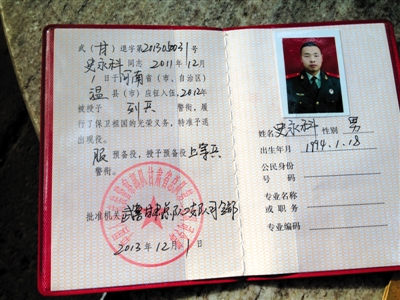 武（甘）退字第20130600311号
史永科 同志 2011 年 12 月
1 日于 河南 省（市、自治区）
温 县（市）应征入伍，2012年
被授予 列兵 警衔，履
行了保卫祖国的光荣义务，特准予退
出现役。
服 预备役，授予预备役 上等兵
警衔。
批准机关 武警甘肃总队 支队司令部
2013 年 12 月 1 日
姓名 史永科 性别 男
出生年月 1994.1.18
公民身份
号 码
专业名称
或职务
专业编码